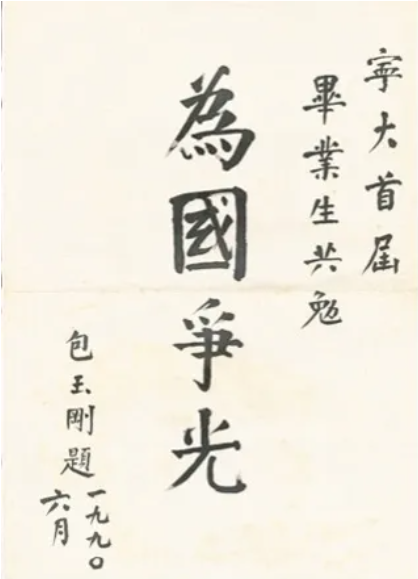 寧大首屆
畢業生共勉
為國爭光
包玉剛題
一九九〇
六月